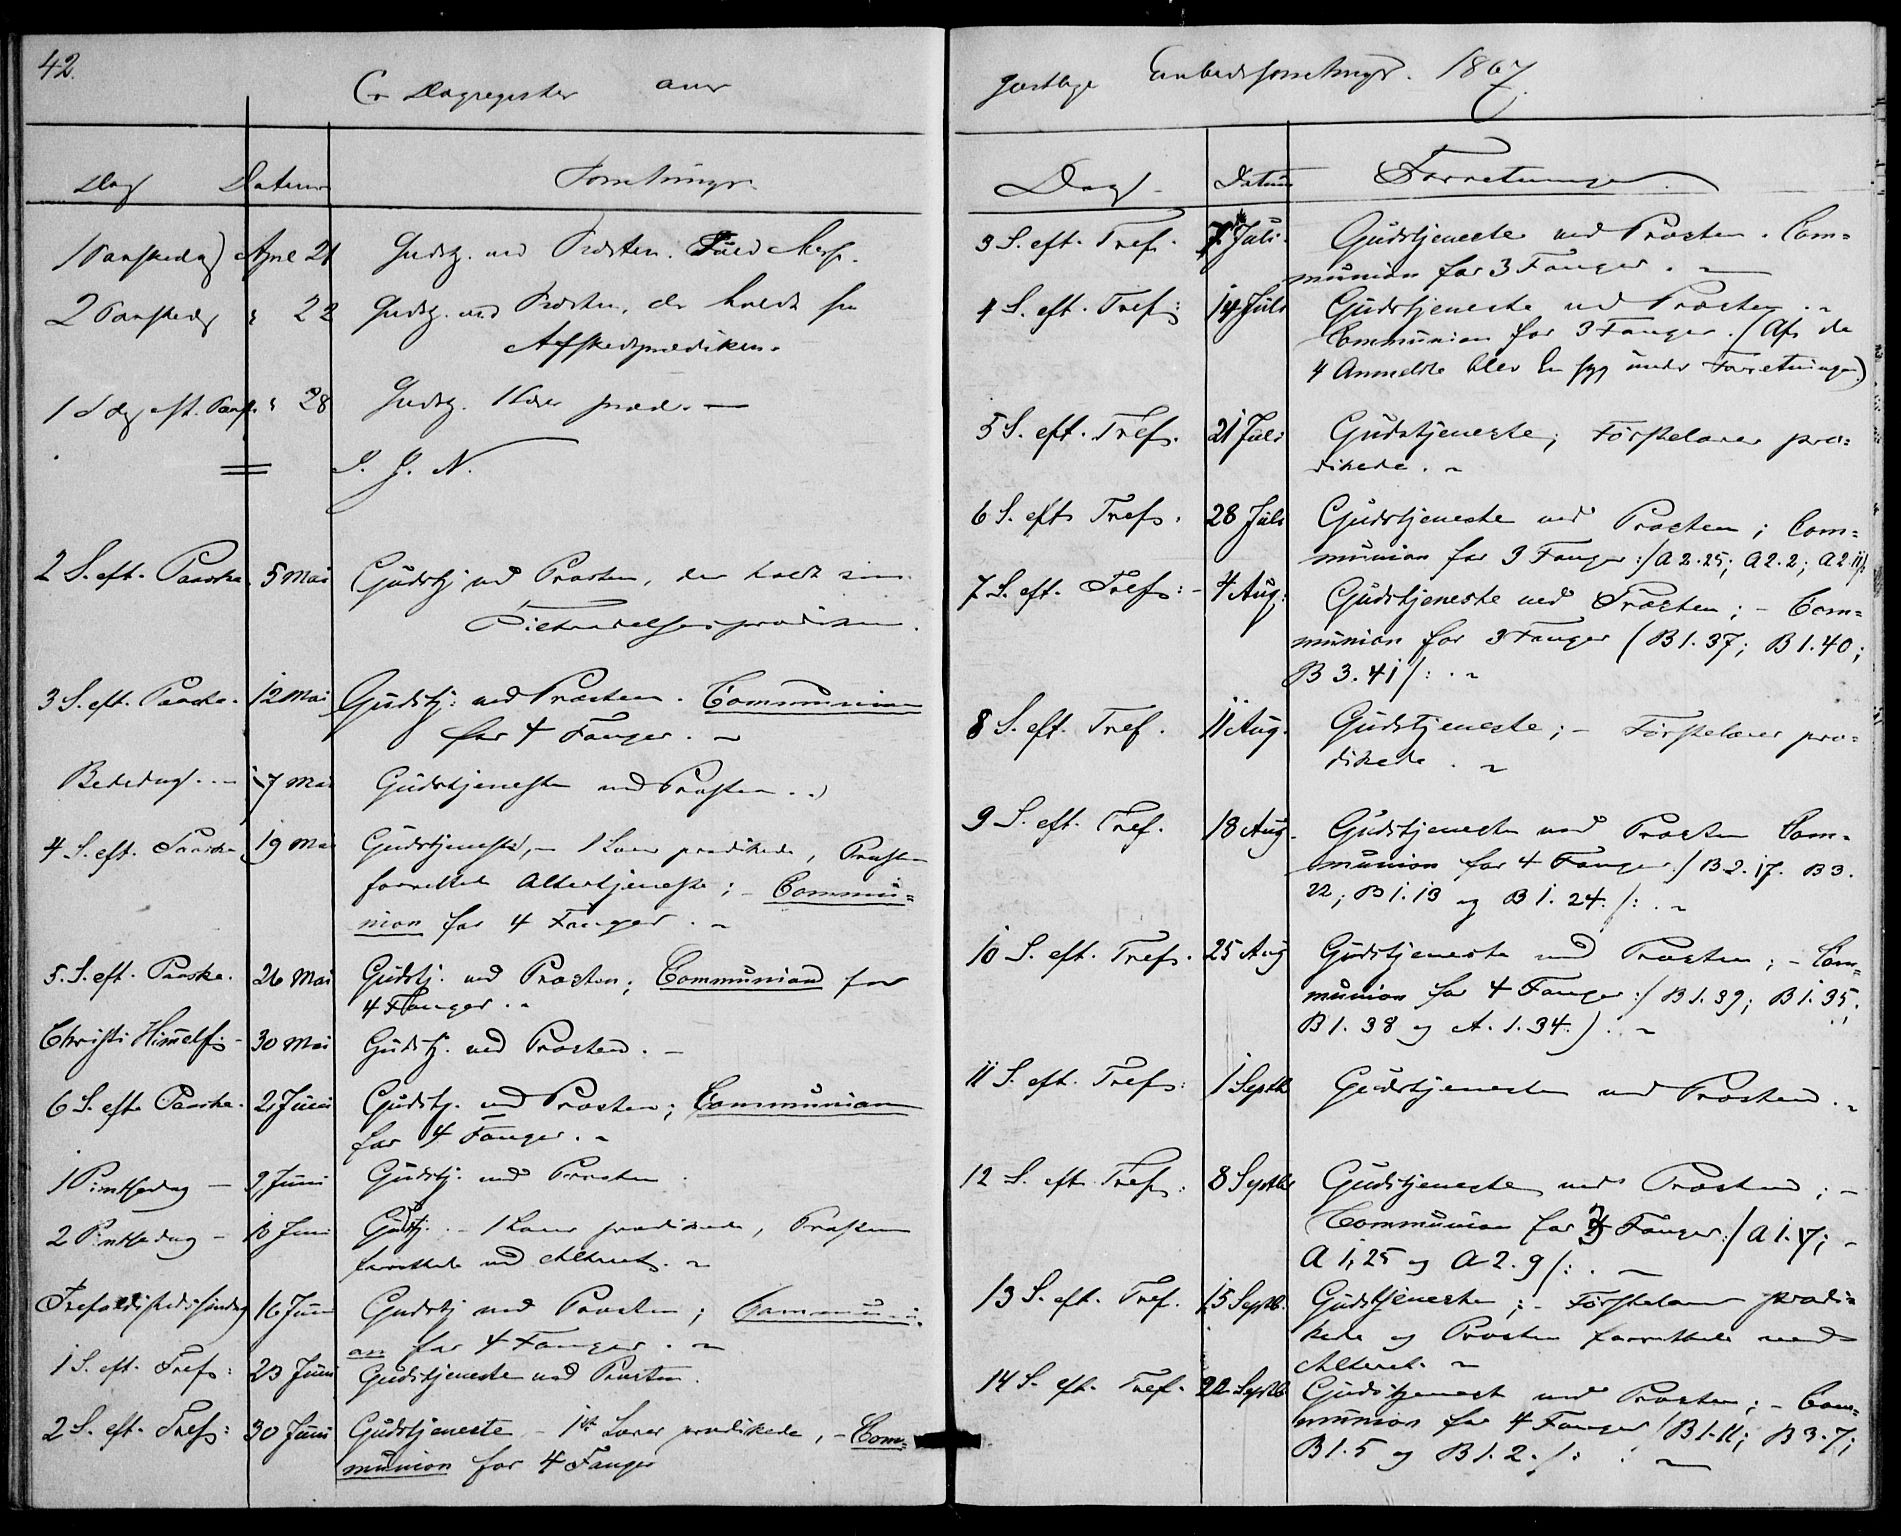 42.
C. Dagregister over
Dag Datum Forretninger
1 Paaskedag April 21 Gudstj. ved Præsten.
2 Paaskedag " 22 Gudstj. ved Præsten, der holdt sin
Afskedsprædiken.
1 S dag eft. Paaske " 28 Gudstj. 1 Lærer præd. —
I. J. N.
2 S. eft. Paaske. 5 Mai Gudstj ved Præsten, der holdt sin
Tiltrædelsesprædiken.
3 S. eft. Paaske. 12 Mai Gudstj: ved Præsten. Communion
for 4 Fanger. ~
Bededag. — 17 Mai Gudstjeneste ved Præsten.
4 S. eft. Paaske 19 Mai Gudstjeneste, — 1 Lærer prædikede, Præsten
forrettede Altertjeneste; — Commu=
nion for 4 Fanger. ~
5. S. eft. Paaske. 26 Mai Gudstj. ved Præsten; Communion for
4 Fanger. ~
Christi Himmelf: 30 Mai Gudstj. ved Præsten. —
6 S. eft. Paaske. 2 Juni Gudstj. ved Præsten; Communion
for 4 Fanger. ~
1 Pintsedag — 9 Juni Gudstj. ved Præsten.
2 Pintsedag — 10 Juni Gudstj. — 1 Lærer prædikede, Præsten
forrettede ved Alteret. ~
Trefoldighedssøndag 16 Juni Gudstj ved Præsten; Communi=
on for 4 Fanger. ~
1 S. eft. Tref: 23 Juni Gudstjeneste ved Præsten.
2 S. eft. Tref: 30 Juni Gudstjeneste — 1ste Lærer prædikede, — Com=
munion for 4 Fanger
geistlige Embedsforretninger. 1867.
Dag. Datum Forretninger
3 S. eft. Tref. 7 Juli. Gudstjeneste ved Præsten. Com=
munion for 3 Fanger. ~
4 S. eft. Tref: 14 Juli Gudstjeneste ved Præsten. ~
Communion for 3 Fanger. (Af de
4 Anmeldte blev En syg under Forretningen)
5 S. eft. Tref. 21 Juli Gudstjeneste; Førstelærer præ=
dikede. ~
6 S. eft. Tref. 28 Juli Gudstjeneste ved Præsten; Com=
munion for 3 Fanger :/ A 2.25; A 2.2; A 2.11/:
7 S. eft. Tref: — 4 Aug: Gudstjeneste ved Præsten; — Com=
munion for 3 Fanger ( B 1.37; B 1.40;
B 3.41 /: . ~
8 S. eft. Tref. 11 Aug. Gudstjeneste; — Førstelærer præ=
dikede. ~
9 S. eft. Tref. 18 Aug. Gudstjeneste ved Præsten Com=
munion for 4 Fanger :/ B 2.17. B 3.
22; B 1.13 og B 1.24. /: . ~
10 S. eft. Tref. 25 Aug Gudstjeneste ved Præsten; — Com=
munion for 4 Fanger :/ B 1.39; B 1.35;
B 1.38 og A. 1.34.) . ~
11 S. eft. Tref: 1 Septb Gudstjeneste ved Præsten. ~
12 S. eft. Tref: 8 Septb Gudstjeneste ved Præsten; —
Communion for 3 Fanger :/ A 1.17; —
A 1,25 og A 2.9 /: . ~
13 S. eft. Tref. 15 Septb. Gudstjeneste; — Førstelærer prædi=
kede og Præsten forrettede ved
Alteret. ~
14 S. eft. Tref. 22 Septb Gudstjeneste ved Præsten; — Com=
munion for 4 Fanger ( B 1.11; B 3.7;
B 1.5 og B 1.2. /: . ~